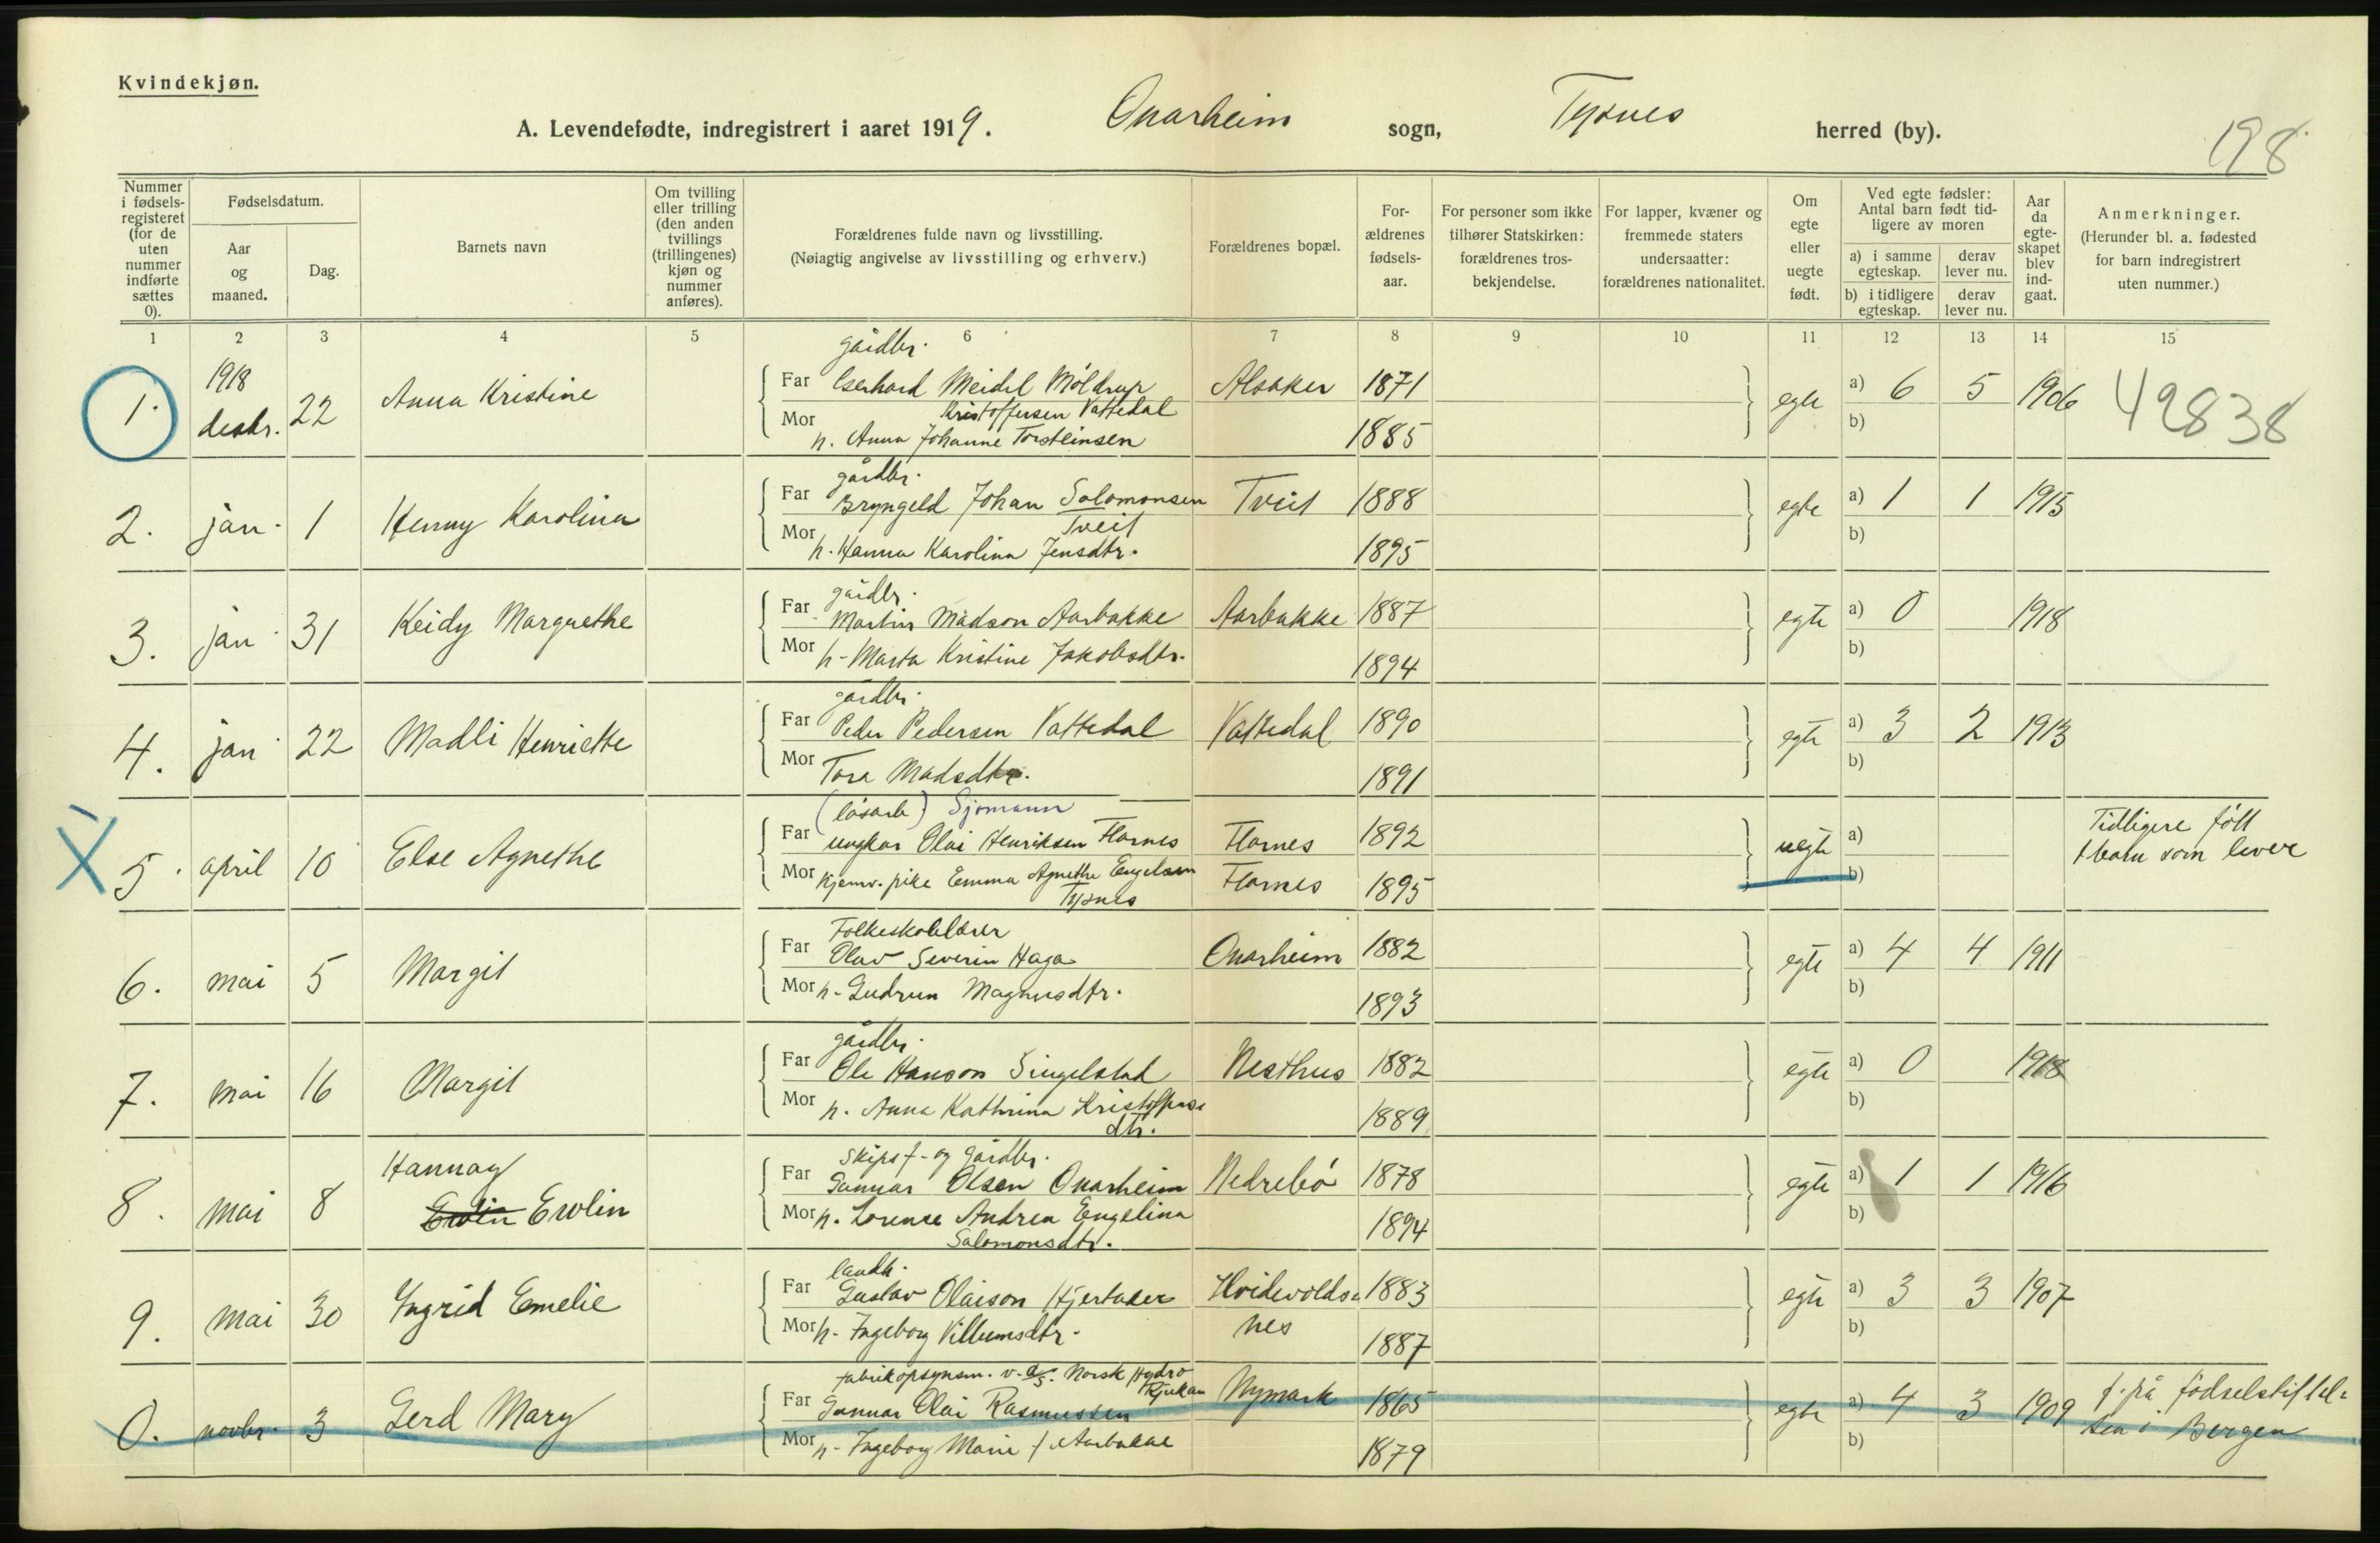 Kvindekjøn.
A. Levendefødte, indregistrert i aaret 1919. Onarheim sogn, Tysnes herred (by).
198
Nummer i fødselsregisteret (for de uten nummer indførte sættes 0).
Fødselsdatum.
Aar og maaned.
Dag.
Barnets navn
Om tvilling eller trilling (den anden tvillings (trillingenes) kjøn og nummer anføres).
Forældrenes fulde navn og livsstilling.
(Nøiagtig angivelse av livsstilling og erhverv.)
Forældrenes bopæl.
Forældrenes fødselsaar.
For personer som ikke tilhører Statskirken: forældrenes trosbekjendelse.
For lapper, kvæner og fremmede staters undersaatter: forældrenes nationalitet.
Om egte eller uegte født.
Ved egte fødsler: Antal barn født tidligere av moren
a) i samme egteskap. derav lever nu.
b) i tidligere egteskap. derav lever nu.
Aar da egteskapet blev indgaat.
Anmerkninger.
(Herunder bl. a. fødested for barn indregistrert uten nummer.)
1 2 3 4 5 6 7 8 9 10 11 12 13 14 15
gårdbr.
1. 1918 desbr. 22 Anna Kristine Far Meidel Møldrup Alsaker 1871 egte a) 6 5 1906 49838
Kristoffersen Vattedal
Mor h. Anna Johanne Torsteinsen 1885 b)
gårdbr.
2. jan. 1 Henny Karolina Far Bryngeld Johan Salomonsen Tveit 1888 egte a) 1 1 1915
Tveit
Mor h. Hanna Karolina Jensdtr. 1895 b)
gårdbr.
3. jan. 31 Keidy Margrethe Far Martin Madson Aarbakke Aarbakke 1887 egte a) 0 1918
Mor h. Marta Kristine Jakobsdtr. 1894 b)
gårdbr.
4. jan. 22 Madli Henriette Far Peder Pedersen Vattedal Vattedal 1890 egte a) 3 2 1913
Mor Tora Madsdtr. 1891 b)
(løsarb) Sjømann
X 5. april 10 Else Agnethe Far ungkar Olai Henriksen Flornes Flornes 1892 uegte a) Tidligere født
1 barn som lever
Mor Kjenv. pike Emma Agnethe Engelsen Flornes 1895 b)
Tysnes
Folkeskolelærer
6. mai 5 Margit Far Olav Severin Haga Onarheim 1882 egte a) 4 4 1911
Mor h. Gudrun Magnusdtr. 1893 b)
gårdbr.
7. mai 16 Margit Far Ole Hanson Singelstad Nesthus 1882 egte a) 0 1918
Mor h. Anna Kathrina Kristoffers-
dtr. 1889 b)
skipsf- og gårdbr.
8. mai 8 Hannay Evolin Evolin Far Gunnar Olsen Onarheim Nedrebö 1878 egte a) 1 1 1916
Mor h. Lorense Andrea Engelina 1894 b)
Salomonsdtr.
landh.
9. mai 30 Ingrid Emelie Far Gustav Olaison Hjertaker Hvidevolds- 1883 egte a) 3 3 1907
Mor h. Ingeborg Villumsdtr. nes 1887 b)
fabrikopsynsm. v. a/s. Norsk Hydro
Rjukan
0. novbr. 3 Gerd Mary Far Gunnar Olai Rasmussen Nymark 1865 egte a) 4 3 1909 f. på fødselstiftel-
sen i Bergen
Mor h. Ingeborg Marie f. Aarbakke 1879 b)